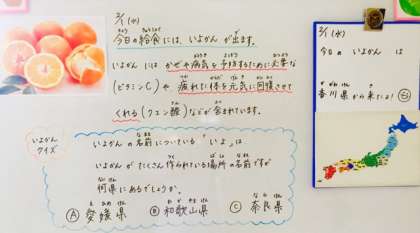 2/1 (水)
今日の給食には、いよかんが出ます。
いよかんにはかぜや病気を予防するために必要な
(ビタミンC)や 疲れた体を元気に回復させて
くれる(クエン酸)などが含まれています。
いよかん
クイズ
いよかんの名前についている「いよ」は
いよかんがたくさん作られている場所の名前ですが
何県にあるでしょうか。
Ⓐ愛媛県 Ⓑ和歌山県 Ⓒ奈良県
2/1 (水)
今日の いよかん は
香川県から来たよ!